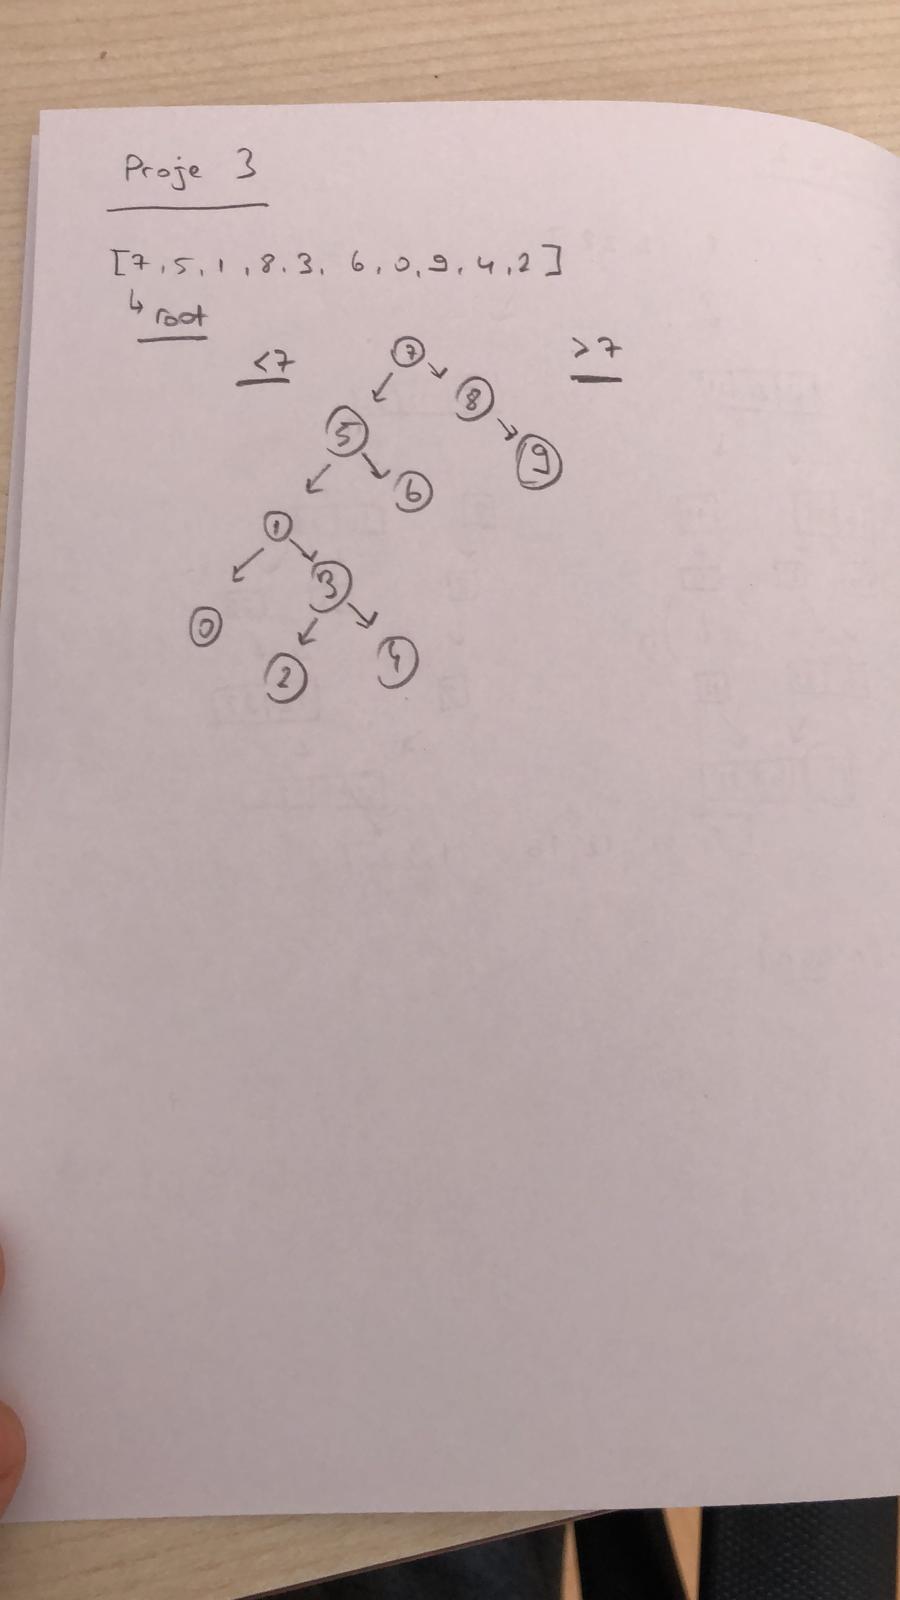 Proje 3
[7, 5, 1, 8, 3, 6, 0, 9, 4, 2]
↳ root
<7
>7
7
8
5
9
6
1
3
0
4
2